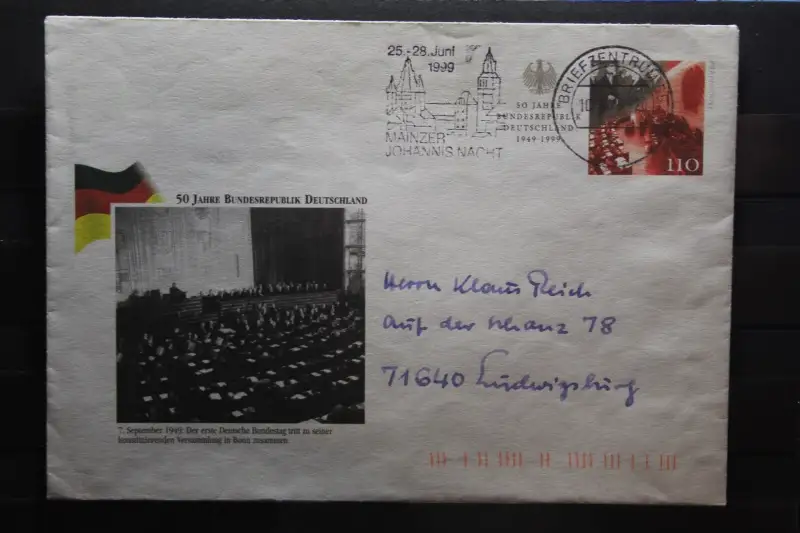 25.-28. Juni
1999
MAINZER
JOHANNISNACHT
50 JAHRE
BUNDESREPUBLIK
DEUTSCHLAND
1949-1999
BRIEFZENTRUM
110
50 JAHRE BUNDESREPUBLIK DEUTSCHLAND
Herrn Klaus Reich
Auf der Schanz 78
71640 Ludwigsburg
7. September 1949: Der erste Deutsche Bundestag tritt zu seiner
konstituierenden Versammlung in Bonn zusammen.